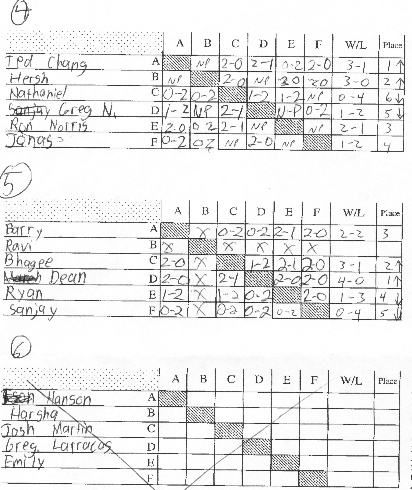 4
A B C D E F W/L Place
Ted Chang A NP 2-0 2-1 0-2 2-0 3-1 1↑
Hersh B NP 2-0 NP 2-0 2-0 3-0 2↑
Nathaniel C 0-2 0-2 1-2 1-2 NP 0-4 6↓
Greg N. D 1-2 NP 2-1 NP 0-2 1-2 5↓
Ron Norris E 2-0 0-2 2-1 NP NP 2-1 3
Jonas F 0-2 0-2 NP 2-0 NP 1-2 4
5
A B C D E F W/L Place
Barry A X 0-2 0-2 2-1 2-0 2-2 3
Ravi B X X X X X
Bhagee C 2-0 X 1-2 2-1 2-0 3-1 2↑
Dean D 2-0 X 2-1 2-0 2-0 4-0 1↑
Ryan E 1-2 X 1-2 0-2 2-0 1-3 4↓
Sanjay F 0-2 X 0-2 0-2 0-2 0-4 5↓
6
A B C D E F W/L Place
Hanson A
Harsha B
Josh Martin C
Greg Larracas D
Emily E
F